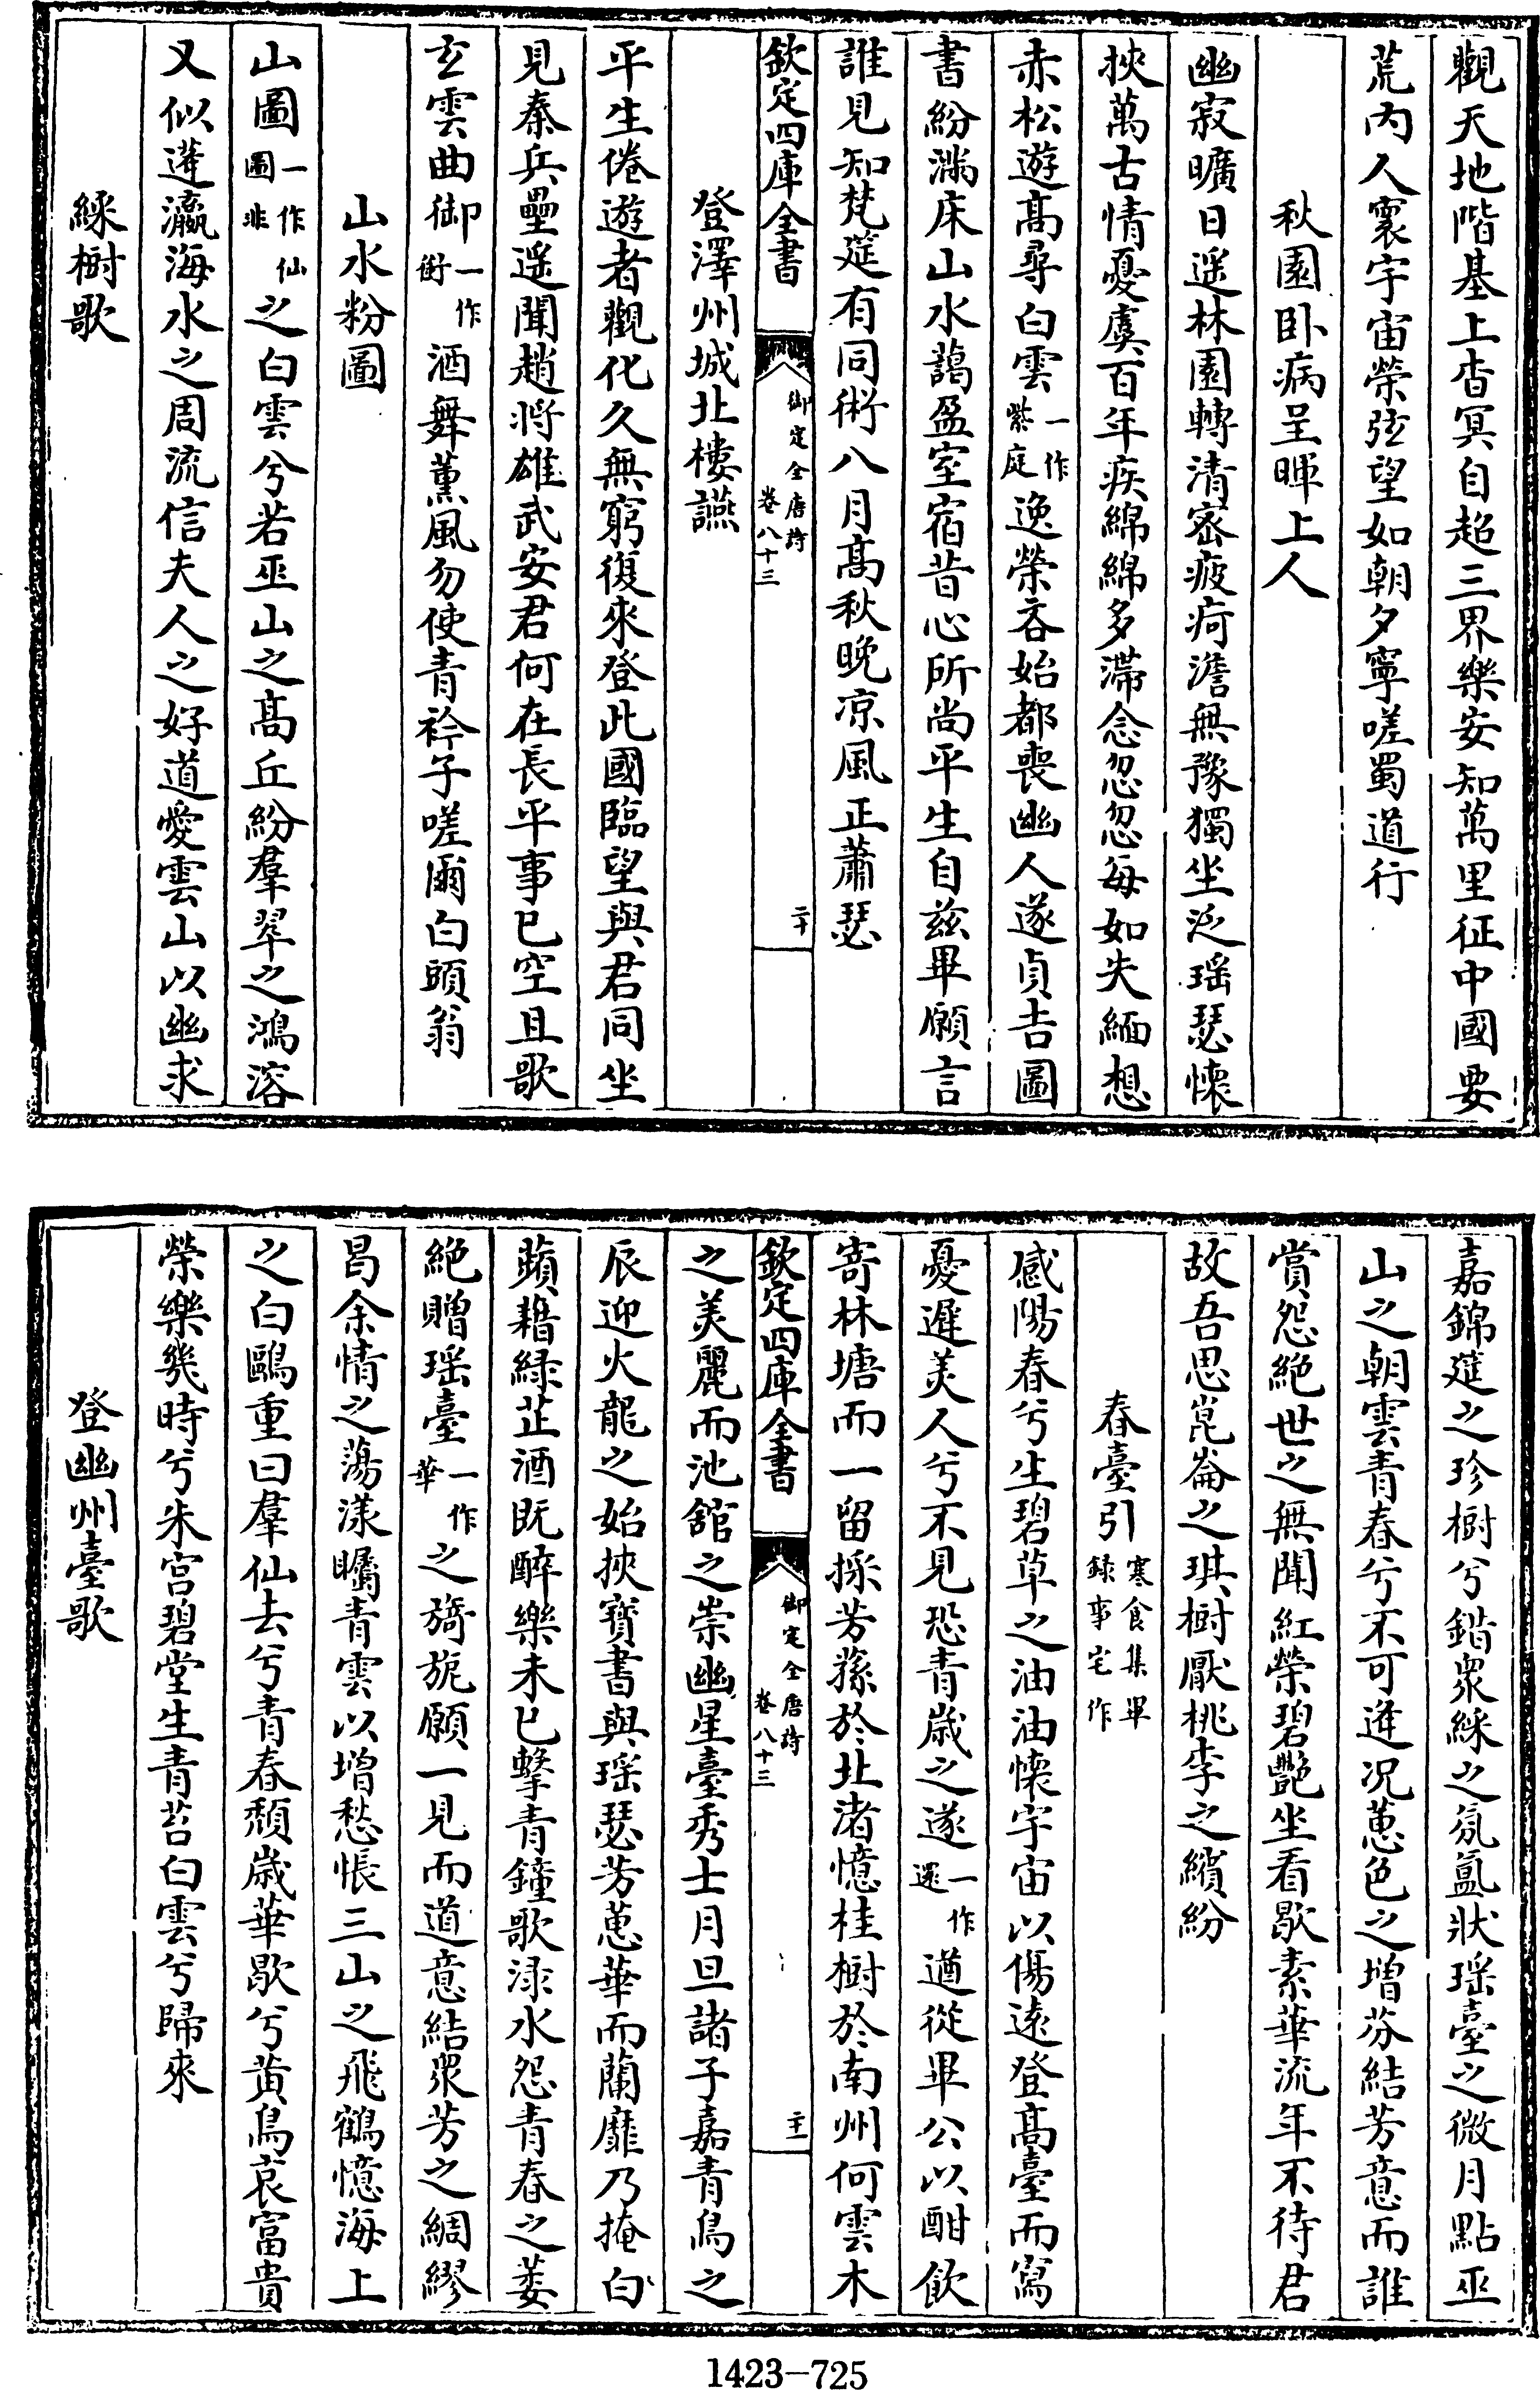 觀天地階基上杳冥自超三界樂安知萬里征中國要
荒内人寰宇宙榮弦望如朝夕寧嗟蜀道行
秋園卧病呈暉上人
幽寂曠日遥林園轉清宻疲疴澹無豫獨坐泛瑶瑟懐
挾萬古情憂虞百年疾綿綿多滯念忽忽每如失緬想
赤松遊髙尋白雲一作紫庭逸榮吝始都喪幽人遂貞吉圖
書紛滿床山水藹盈室宿昔心所尚平生自兹畢願言
誰見知梵筵有同術八月髙秋晚凉風正蕭瑟
欽定四庫全書
御定全唐詩
卷八十三
二十
登澤州城北樓讌
平生倦遊者觀化久無窮復來登此國臨望與君同坐
見秦兵壘遥聞趙將雄武安君何在長平事已空且歌
玄雲曲御一作銜酒舞薫風勿使青衿子嗟爾白頭翁
山水粉圖
山圖一作仙圖非之白雲兮若巫山之髙丘紛羣翠之鴻溶
又似蓬瀛海水之周流信夫人之好道愛雲山以幽求
綵樹歌
嘉錦筵之珍樹兮錯衆綵之氛氲狀瑶臺之微月點巫
山之朝雲青春兮不可逢况蕙色之増芬結芳意而誰
賞怨絶世之無聞紅榮碧艷坐看歇素華流年不待君
故吾思崑崙之琪樹厭桃李之繽紛
春臺引寒食集畢録事宅作
感陽春兮生碧草之油油懐宇宙以傷遠登髙臺而寫
憂遲美人兮不見恐青歳之遂一作還遒從畢公以酣飲
寄林塘而一留採芳蓀於北渚憶桂樹於南州何雲木
欽定四庫全書
御定全唐詩
卷八十三
二十一
之美麗而池舘之崇幽星臺秀士月旦諸子嘉青鳥之
辰迎火龍之始挾寳書與瑶瑟芳蕙華而蘭靡乃掩白
蘋藉緑芷酒既醉樂未已擊青鐘歌渌水怨青春之萎
絶贈瑶臺一作華之旖旎願一見而道意結衆芳之綢繆
曷余情之蕩漾矚青雲以増愁悵三山之飛鶴憶海上
之白鷗重曰羣仙去兮青春頽歳華歇兮黄鳥哀富貴
榮樂幾時兮朱宫碧堂生青苔白雲兮歸來
登幽州臺歌
1423-725